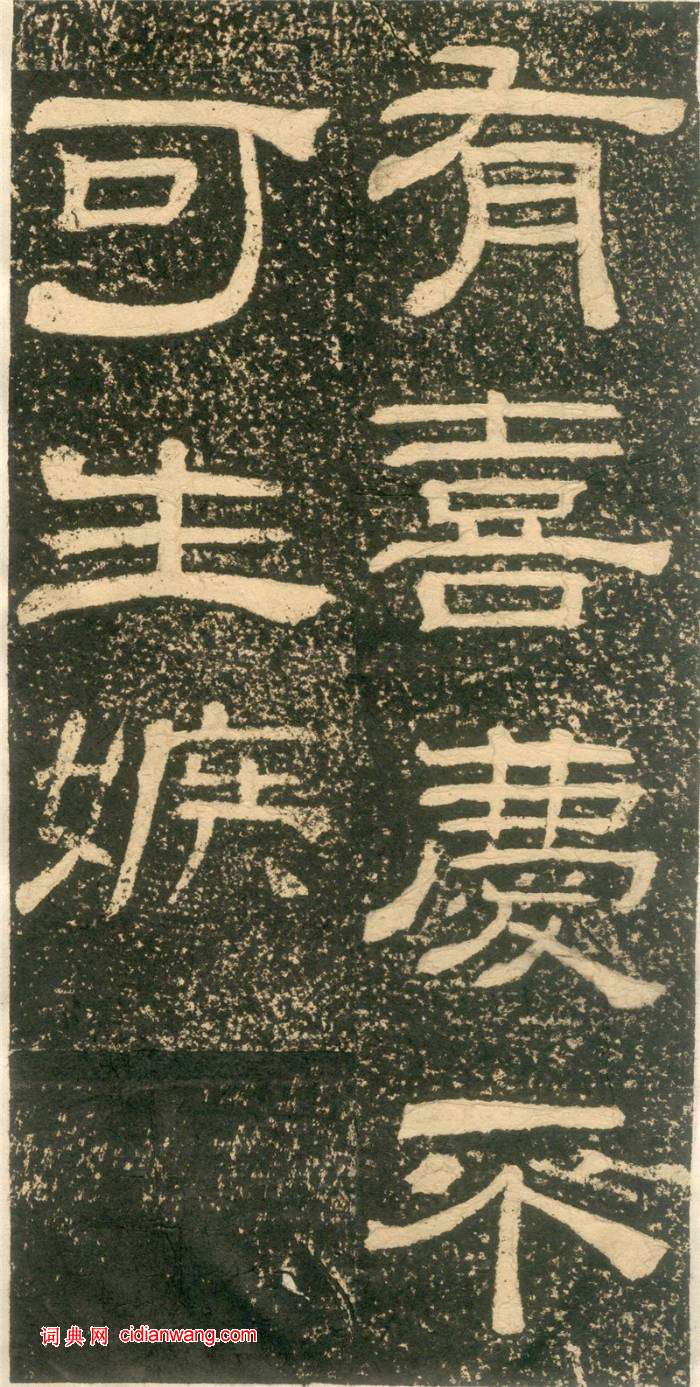 有喜慶不
可生嫉
词典网 cidianwang.com